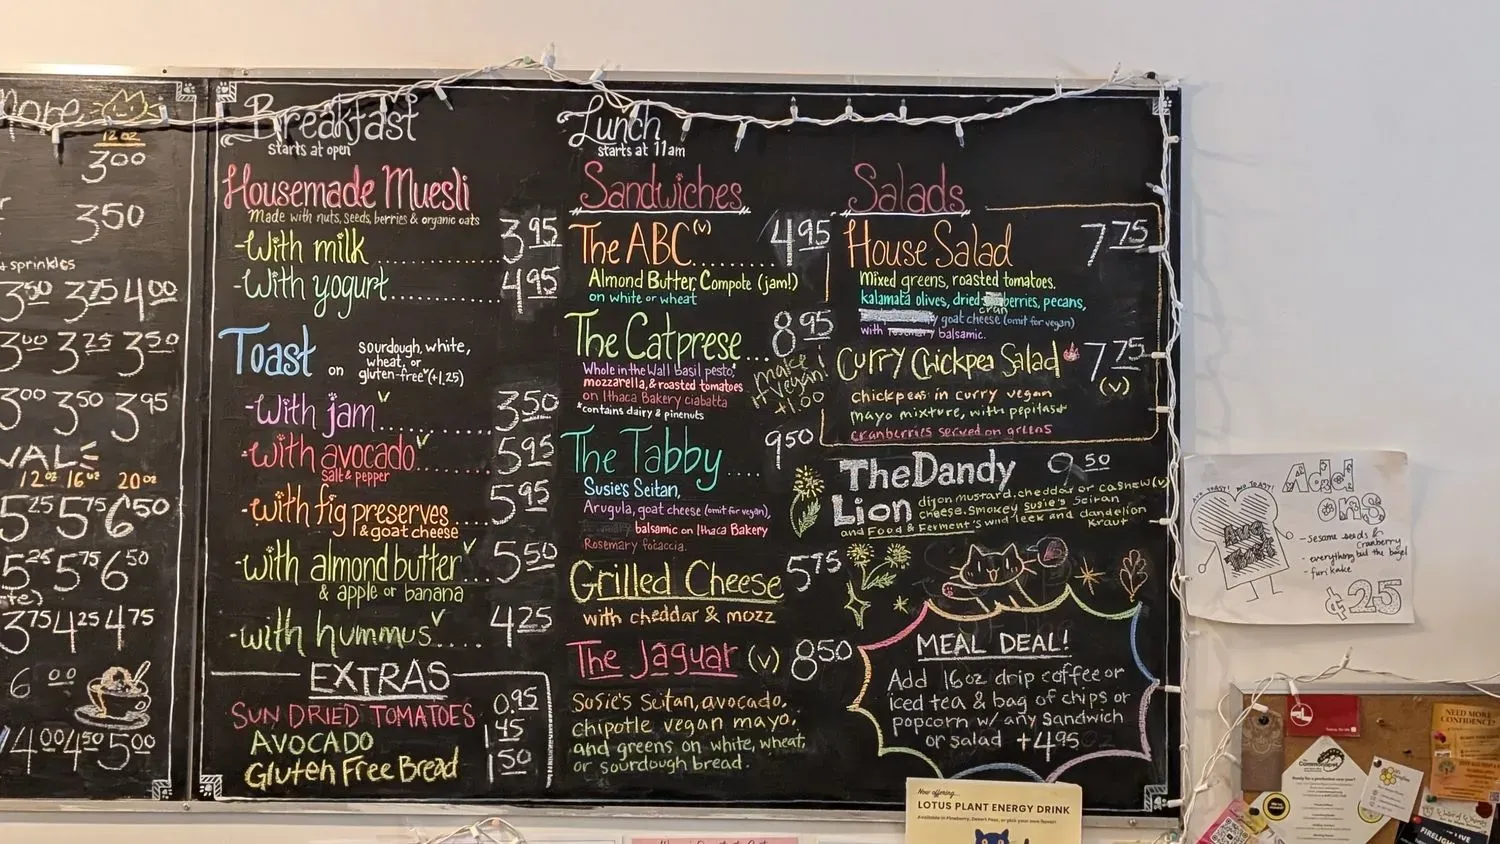 more
12 oz
3.00
3.50
+ sprinkles
3.50 3.75 4.00
3.00 3.25 3.50
3.00 3.50 3.95
VAL
12 oz 16 oz 20 oz
5.25 5.75 6.50
5.25 5.75 6.50
3.75 4.25 4.75
6.00
4.00 4.50 5.00
Breakfast
starts at open
Housemade Muesli
Made with nuts, seeds, berries & organic oats
-With milk 3.95
-With yogurt 4.95
Toast on sourdough, white,
wheat, or
gluten-free v (+1.25)
-With jam v 3.50
-With avocado v 5.95
salt & pepper
-with fig preserves 5.95
& goat cheese
-with almond butter v 5.50
& apple or banana
-with hummus v 4.25
EXTRAS
SUN DRIED TOMATOES 0.95
AVOCADO 1.45
Gluten Free Bread 1.50
Lunch
starts at 11am
Sandwiches
The ABC (v) 4.95
Almond Butter, Compote (jam!)
on white or wheat
The Catprese 8.95
Whole in the Wall basil pesto,*
mozzarella, & roasted tomatoes
on Ithaca Bakery ciabatta
*contains dairy & pinenuts
make it vegan! +1.00
The Tabby 9.50
Susie's Seitan,
Arugula, goat cheese (omit for vegan),
balsamic on Ithaca Bakery
Rosemary focaccia.
Grilled Cheese 5.75
with cheddar & mozz
The Jaguar (v) 8.50
Susie's Seitan, avocado,
chipotle vegan mayo,
and greens on white, wheat,
or sourdough bread.
Salads
House Salad 7.75
Mixed greens, roasted tomatoes.
kalamata olives, dried cranberries, pecans,
goat cheese (omit for vegan)
with balsamic.
Curry Chickpea Salad 7.75
(v)
chickpeas in curry vegan
mayo mixture, with pepitas +
cranberries served on greens
The Dandy Lion 9.50
dijon mustard, cheddar or cashew (v)
cheese. Smokey Susie's Seitan
and Food & Ferment's wild leek and dandelion
kraut
MEAL DEAL!
Add 16oz drip coffee or
iced tea & bag of chips or
popcorn w/ any sandwich
or salad +4.95
Add
ons
- sesame seeds &
cranberry
- everything but the bagel
- furikake
¢25
Now offering...
LOTUS PLANT ENERGY DRINK
NEED MORE
CONFIDENCE?